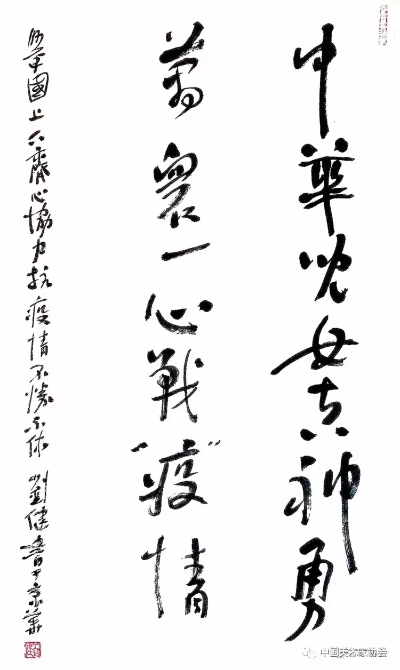 中華兒女真神勇
萬眾一心戰“疫”情
舉國上下齊心協力抗疫情不勝不休 劉健書于京華
中国美术家协会